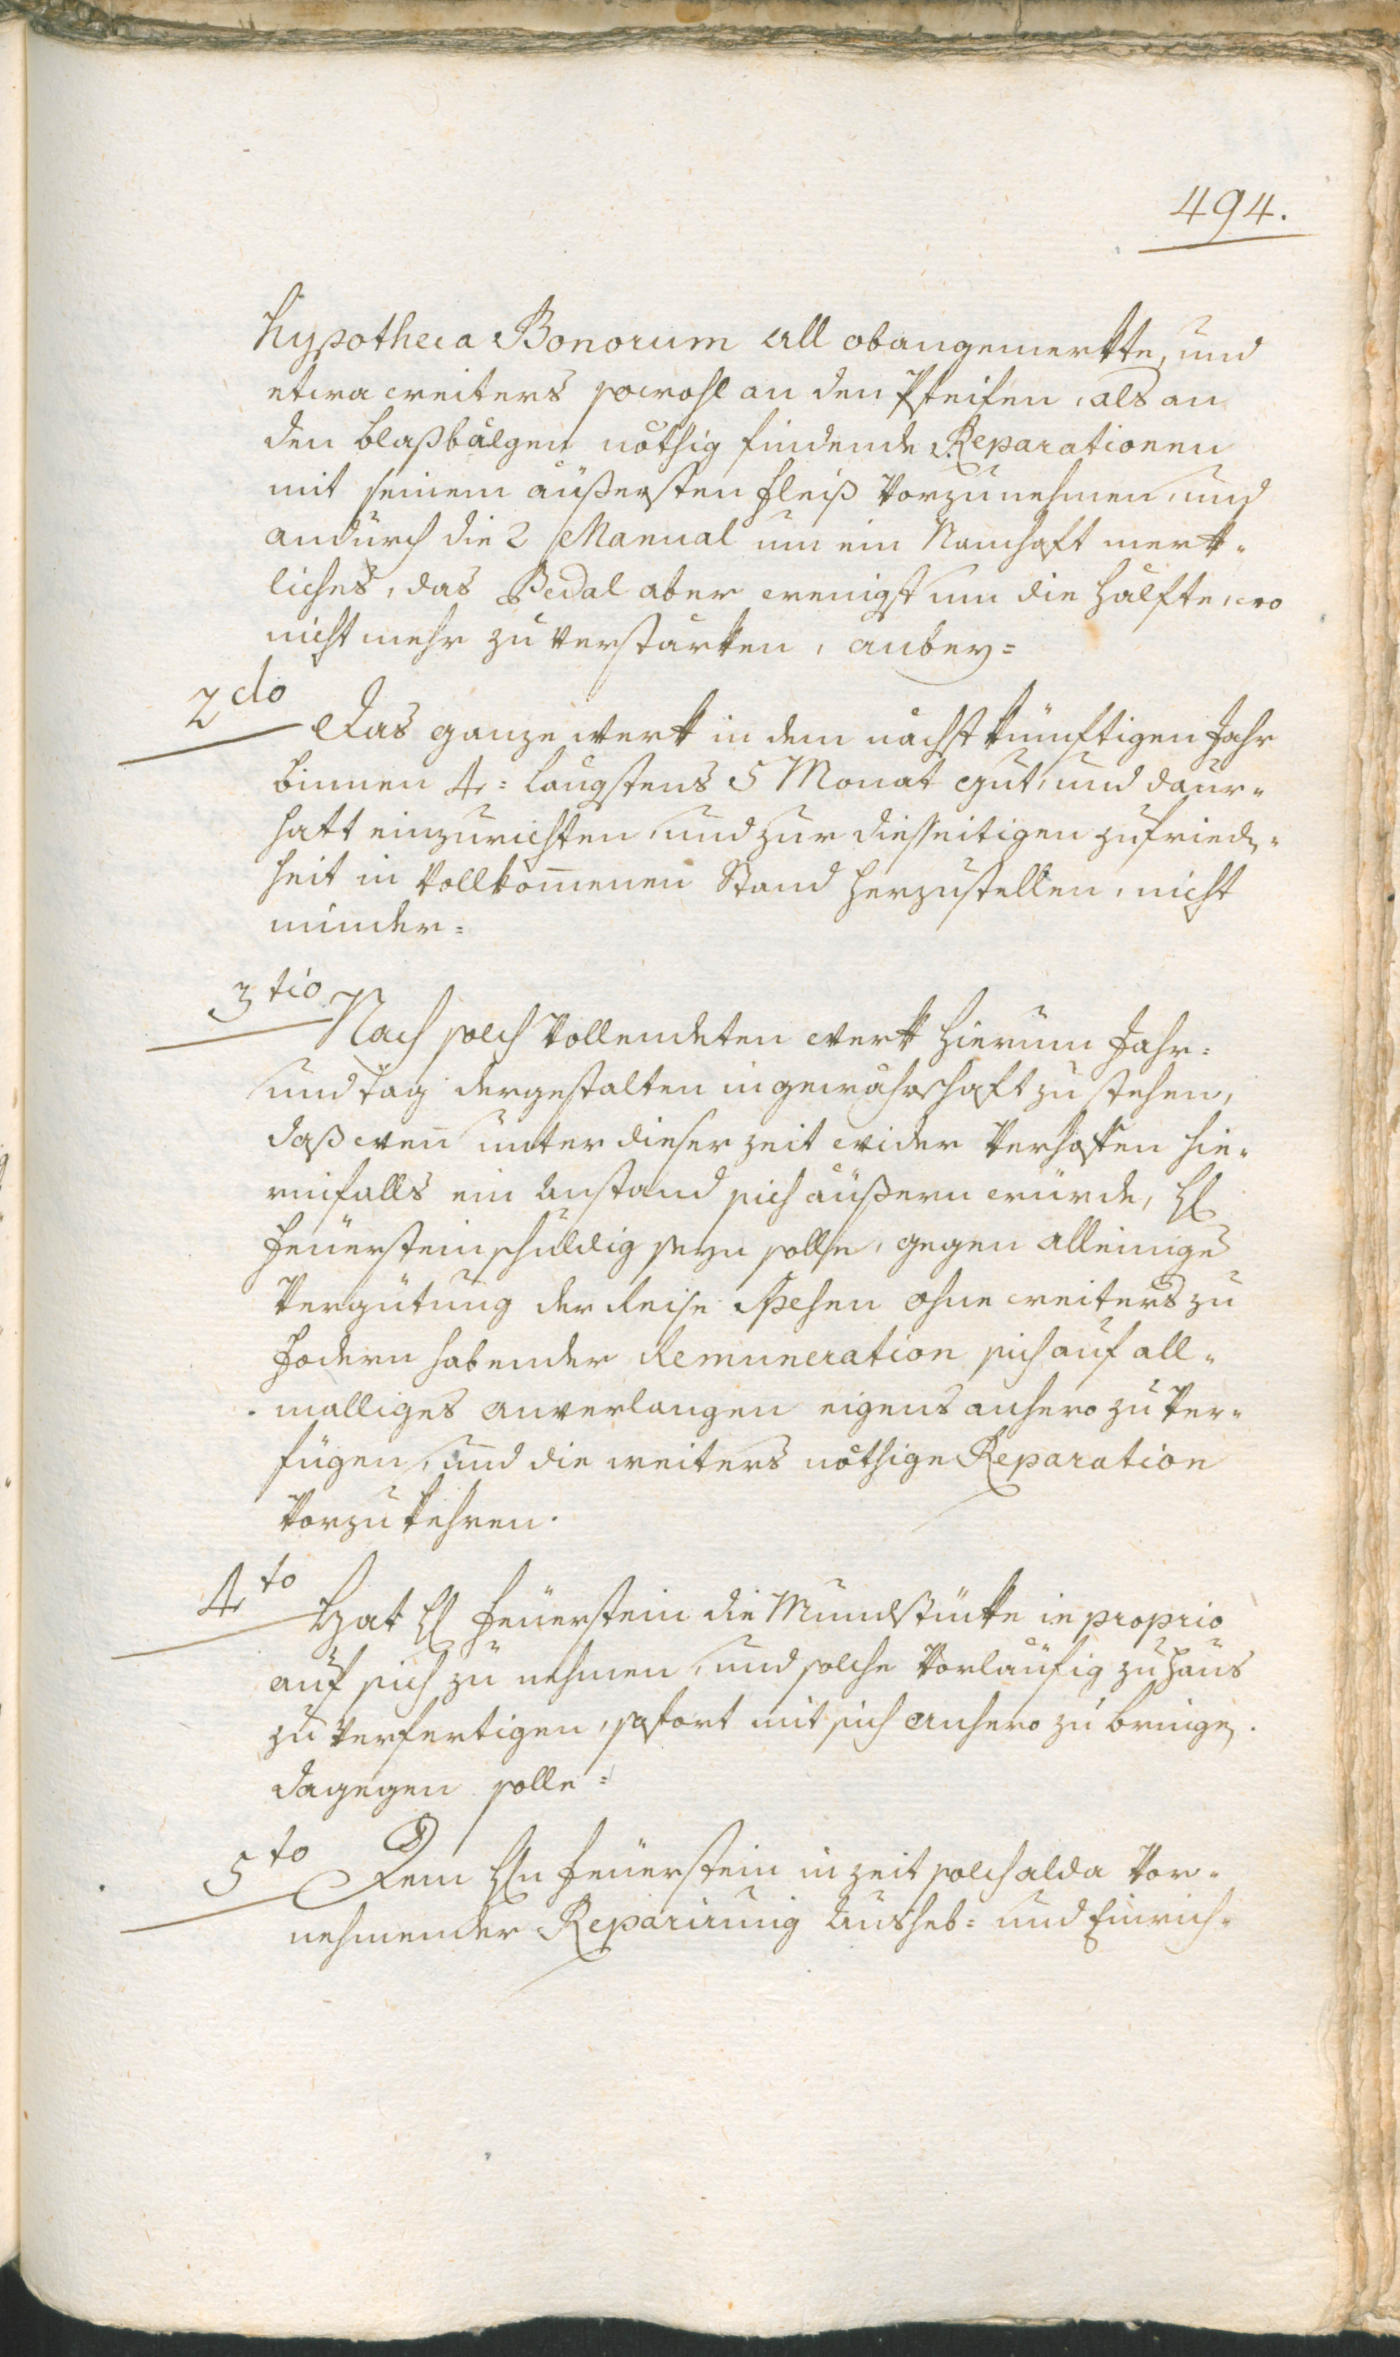 494.
hypotheca Bonorum all obangemerkte, und
etwa weiters sowohl an den Pfeifen, als an
den Blaßbälgen nöthig findende Reparationen
mit seinem äüßersten fleiß vorzunehmen, und
andurch die 2 Manual um ein Namhaft merk-
liches, das Pedal aber wenigst um die hälfte, wo
nicht mehr zu verstärken, anbey=
2do Das ganze werk in dem nächst künftigen Jahr
binnen 4= längstens 5 Monat gut, und daur-
haft einzurichten, und zur diesseitigen zufrieden-
heit in vollkom̅enen Stand herzustellen, nicht
minder=
3tio Nach solch vollendeten werk hierum Jahr=
und Tag dergestalten in gewährschaft zu stehen,
daß wen̅ unter dieser zeit wider verhoffen hie-
rinfalls ein Anstand sich äüßern würde, H
Feüerstein schuldig seyn solle, gegen alleinige
Vergütung der Reise Spesen ohne weiters zu
fodern habender Remuneration sich auf all-
malliges anverlangen eigens anhero zu ver-
fügen, und die weiters nöthige Reparation
vorzukehren.
4to Hat H Feüerstein die Mundstücke in proprio
auf sich zu nehmen, und solche vorläüfig zu Haus
zu verfertigen, sofort mit sich anhero zu bringen.
dagegen solle=
5to Dem Hn Feüerstein in zeit solch alda vor-
nehmender Reparirung Ausheb= und Einrich-